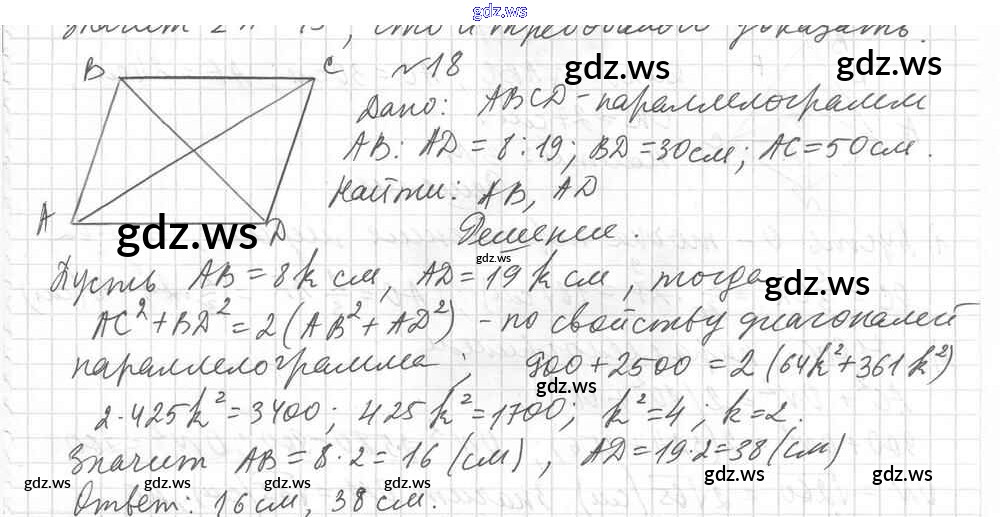 gdz.ws
значит
что и требовалось доказать.
B C №18
gdz.ws gdz.ws
Дано: ABCD - параллелограмм
AB : AD = 8 : 19; BD = 30 см; AC = 50 см.
Найти: AB, AD
A D
gdz.ws
Решение.
gdz.ws
Пусть AB = 8k см, AD = 19k см, тогда
gdz.ws
AC² + BD² = 2(AB² + AD²) - по свойству диагоналей
параллелограмма; 900 + 2500 = 2(64k² + 361k²)
gdz.ws
2·425k² = 3400; 425k² = 1700; k² = 4; k = 2.
Значит AB = 8·2 = 16 (см), AD = 19·2 = 38 (см)
gdz.ws gdz.ws gdz.ws gdz.ws gdz.ws
Ответ: 16 см, 38 см.